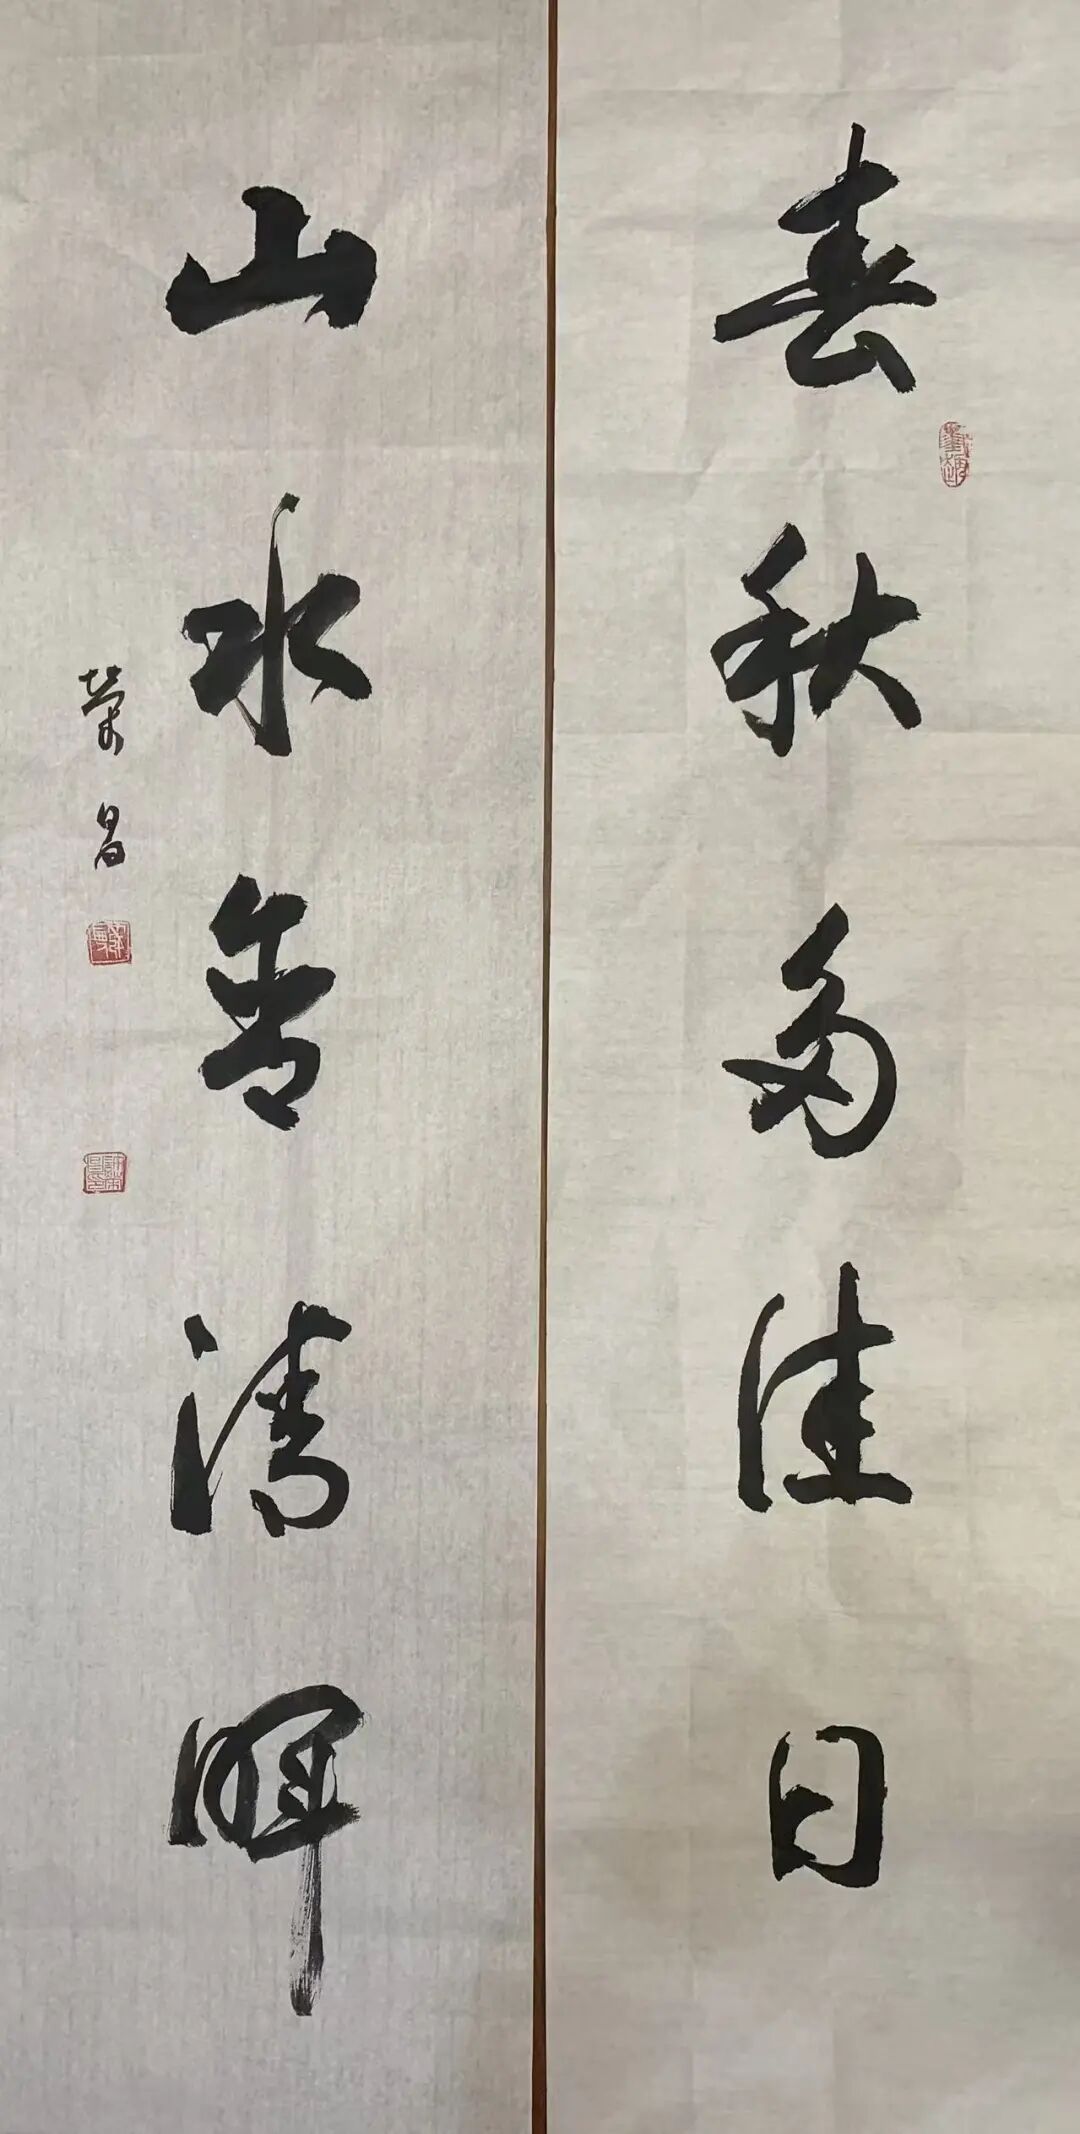 春秋多佳日
山水含清暉
荣昌